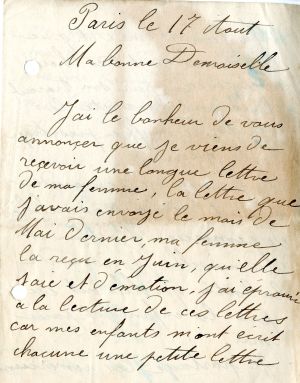 Paris le 17 Aout
Ma bonne Demoiselle
J'ai le bonheur de vous
annonçer que je viens de
reçevoir une longue lettre
de ma femme, la lettre que
j'avais envoyé le mois de
Mai dernier, ma femme
la reçu en Juin, qu'elle
joie et d'emotion, j'ai eprouvé
a la lecture de ces lettres
car mes enfants m'ont ecrit
chacune une petite lettre